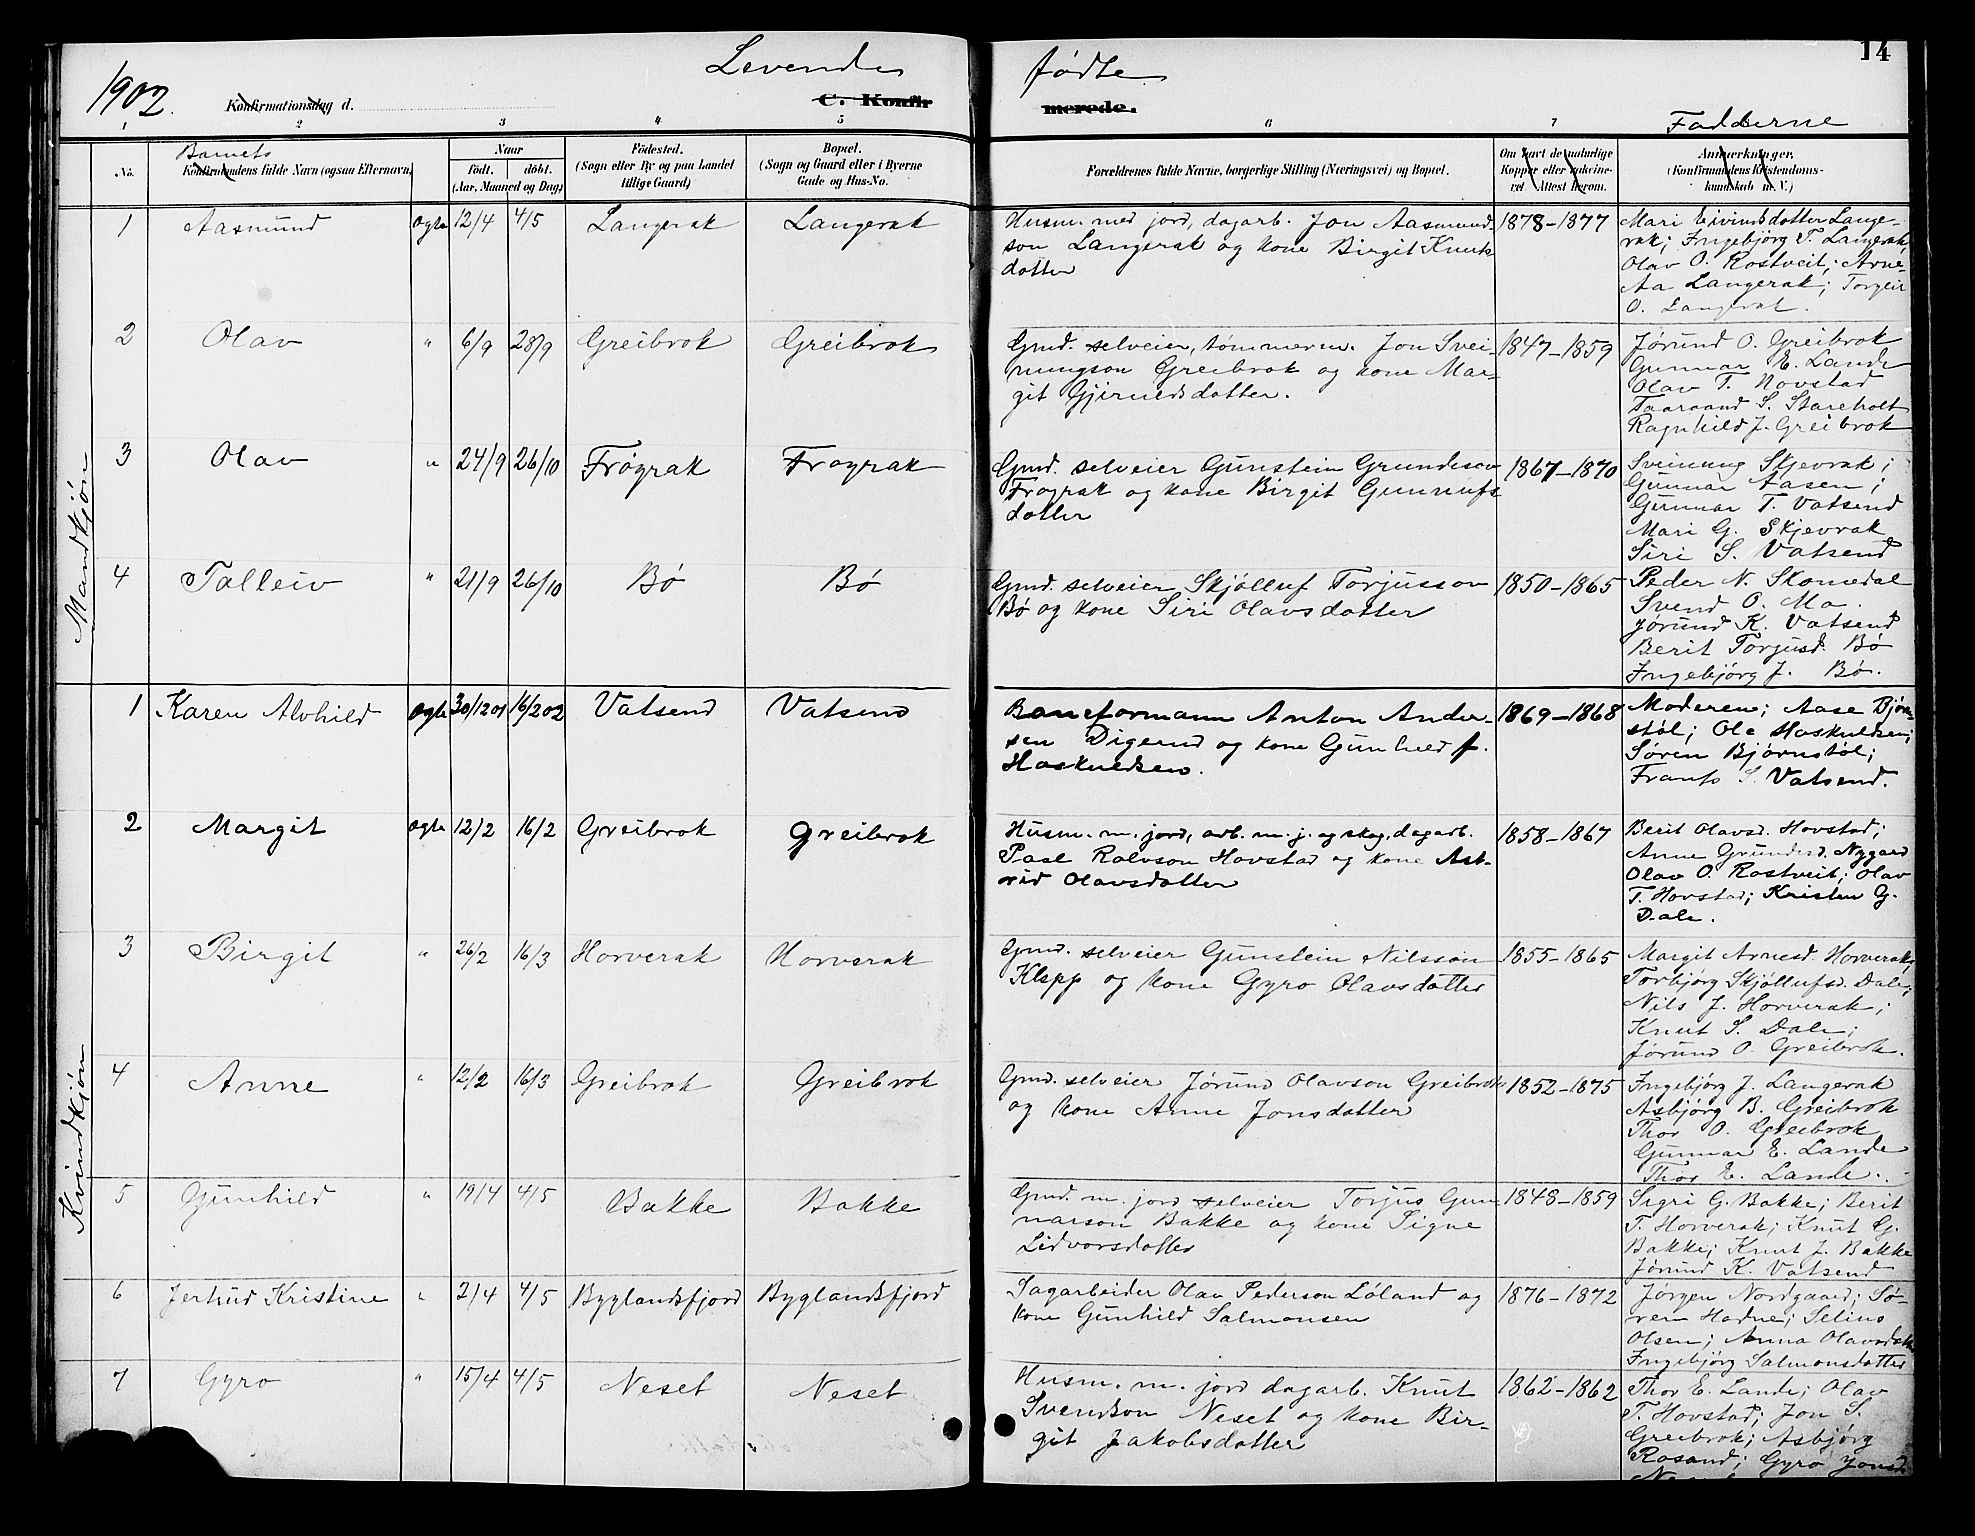 1902.
Levende
fødte
14
Konfirmationsdag d.
C. Konfir
merede.
1 2 3 4 5 6 7
Fadderne
No.
Barnets
Konfirmandens fulde Navn (ogsaa Efternavn)
Naar
født. døbt.
(Aar, Maaned og Dag)
Fødested.
(Sogn eller By og paa Landet
tillige Gaard)
Bopæl.
(Sogn og Gaard eller i Byerne
Gade og Hus-No.
Forældrenes fulde Navne, borgerlige Stilling (Næringsvei) og Bopæl.
Om havt de naturlige
Kopper eller vakcine-
ret Attest herom.
Anmærkninger.
(Konfirmandens Kristendoms-
kundskab m. V.)
Mandkjøn
1 Aasmund ogte 12/4 4/5 Langerak Langerak
Husm. med jord, dagarb. Jon Aasmund-
son Langerak og kone Birgit Knuts
datter
1878-1877
Mari Eivindsdatter Lange-
rak; Ingebjörg T. Langerak,
Olav O. Rostveit; Arne
Aa Langerak; Torgeir
O. Langerak.
2 Olav " 6/9 28/9 Greibrok Greibrok
Gmd. selveier, tømmerm. Jon Svei-
nungson Greibrok og kone Mar-
git Gjerulds datter.
1847-1859
Jørund O. Greibrok
Gunnar E. Lande
Olav T. Hovstad
Taaraand S. Stareholt
Ragnhild J. Greibrok
3 Olav " 24/9 26/10 Frøyrak Frøyrak
Gmd. selveier Gunstein Grundeson
Frøyrak og kone Birgit Gunnufs
datter
1867-1870
Sveinung Skjevrak;
Gunnar Aasen;
Gunnar T. Vatsend
Mari G. Skjevrak
Siri S. Vatsend
4 Talleiv " 21/9 26/10 Bø Bø
Gmd. selveier Skjølluf Torjusson
Bø og kone Siri Olavsdatter
1850-1865
Peder N. Skomedal
Svend O. Mo.
Jørund K. Vatsend
Berit Torjusd. Bø
Ingebjörg J. Bø.
Kvindkjøn
1 Karen Alvhild ogte 30/12 01 16/2 02 Vatsend Vatsend
Baneformann Anton Ander-
sen Digerud og kone Gunhild f.
Haskuldsen.
1869-1868
Moderen; Aase Bjørn-
støl; Ole Haskuldsen;
Søren Bjørnstøl;
Frants S. Vatsend.
2 Margit ogte 12/2 16/2 Greibrok Greibrok
Husm. m. jord, arb. m. j. og skog, dagarb.
Paal Rolvson Hovstad og kone Ast-
rid Olavsdatter
1858-1867
Berit Olavsd. Hovstad;
Anne Grundesd. Nygard
Olav O. Rostveit; Olav
T. Hovstad; Kristen G.
Dale.
3 Birgit " 26/2 16/3 Horverak Horverak
Gmd. selveier Gunstein Nilsson
Klepp og kone Gyro Olavsdatter
1855-1865
Margit Arnesd. Horverak;
Torbjörg Skjøllufsd. Dale;
Nils J. Horverak;
Knut S. Dale;
Jørund O. Greibrok.
4 Anne " 12/2 16/3 Greibrok Greibrok
Gmd. selveier Jørund Olavson Greibrok
og kone Anne Jonsdatter
1852-1875
Ingebjörg J. Langerak
Asbjörg B. Greibrok
Thor O. Greibrok
Gunnar E. Lande
Thor E. Lande.
5 Gunhild " 19/4 4/5 Bakke Bakke
Gmd. m. jord selveier Torjus Gun
narson Bakke og kone Signe
Lidvorsdatter
1848-1859
Sigri G. Bakke; Berit
T. Horverak; Knut G.
Bakke; Knut J. Bakke
Jørund K. Vatsend
6 Jertrud Kristine " 2/4 4/5 Byglandsfjord Byglandsfjord
Sagarbeider Olav Pederson Løland og
kone Gunhild Salmonsen
1876-1872
Jørgen Nordgaard; Sø-
ren Hodne; Selius
Olsen; Anna Olavsdatter
Ingebjörg Salmonsdatter
7 Gyro " 15/4 4/5 Neset Neset
Husm. m. jord dagarb. Knut
Svendson Neset og kone Bir-
git Jakobsdatter
1862-1862
Thor E. Lande; Olav
T. Hovstad; Jon S.
Greibrok; Asbjörg
Rosand; Gyro Jonsd.